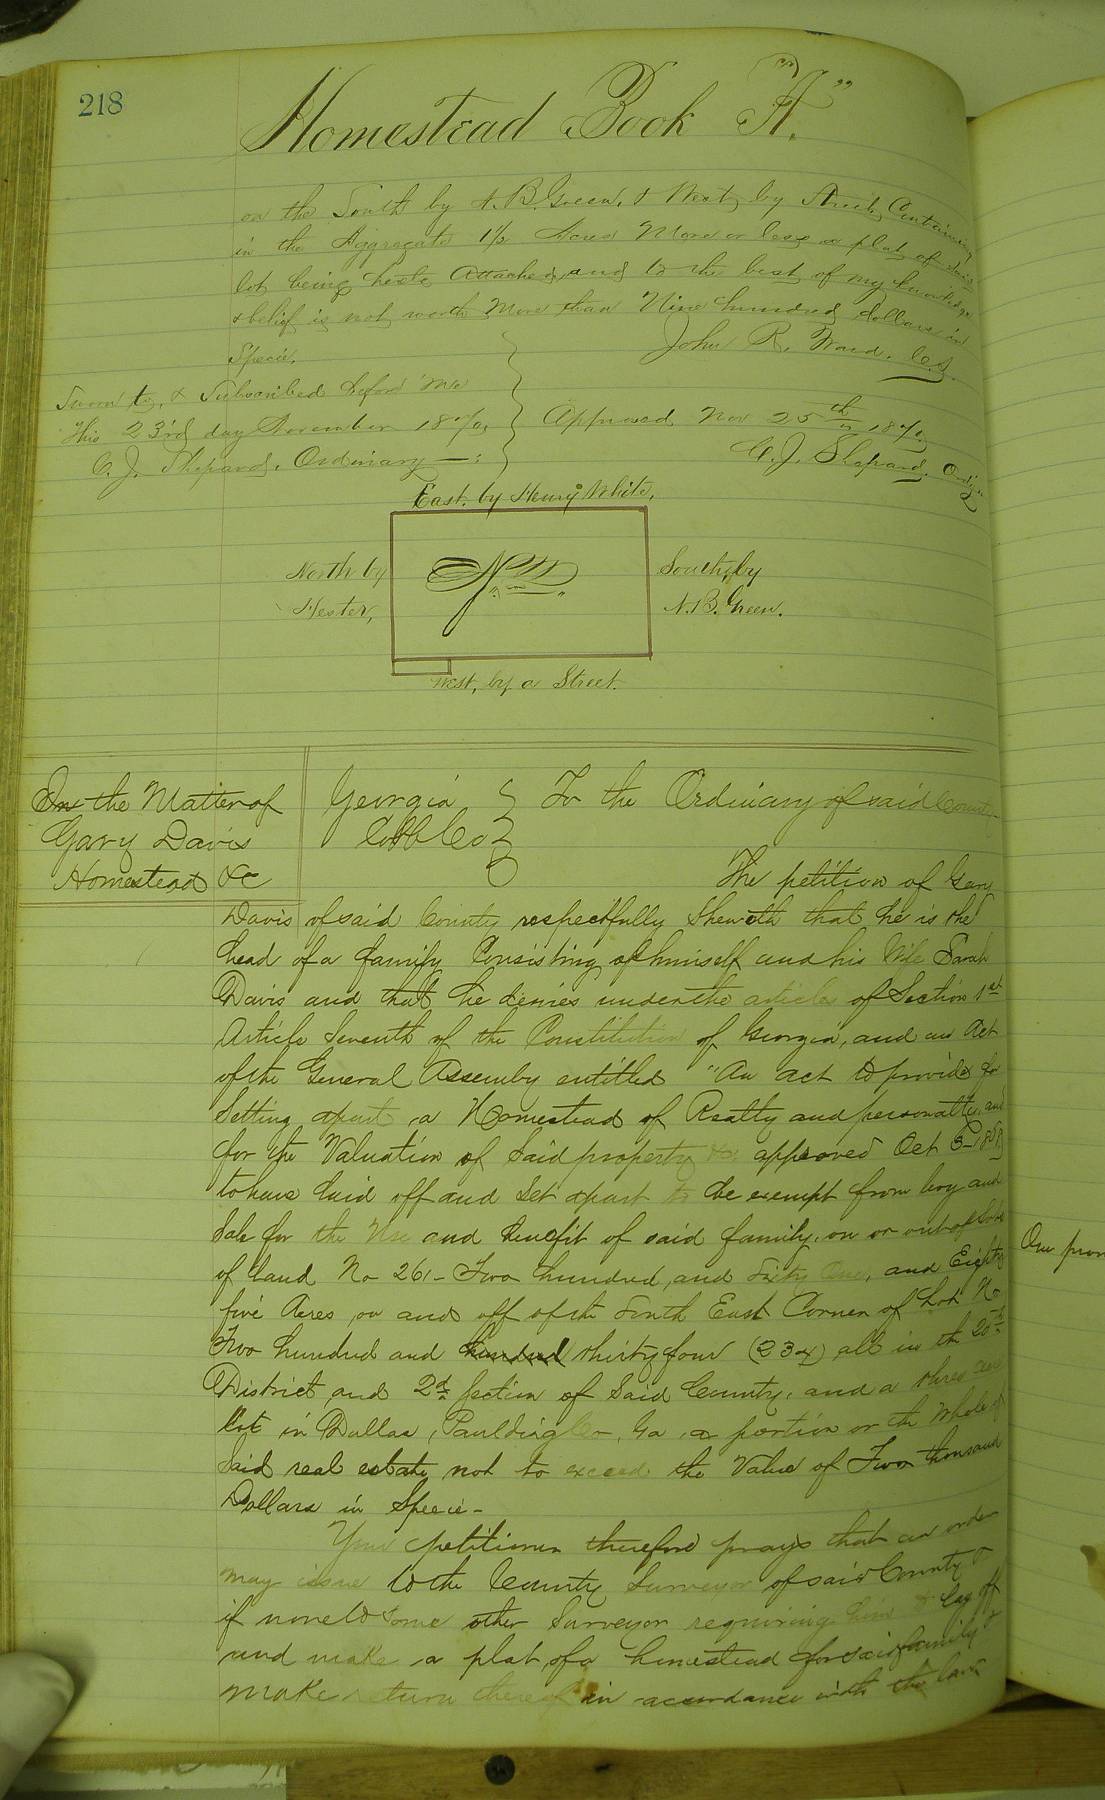 218
Homestead Book "A."
on the South by N. B. Green, & West, by Street, Containing
in the Aggregate 1½ Acres More or less a plat of said
lot being hereto Attached, and to the best of my knowledge
& belief is not worth More than Nine hundred dollars in
Specie.
John R. Ward. C.S.
Sworn to, & Subscribed before me
This 23rd day November 1870,
C. J. Shepard, Ordinary
Approved Nov 25th 1870
C. J. Shepard, Ordy
East. by Henry White.
North by
Hester,
South, by
N. B. Green.
West, by a Street.
In the Matter of
Gary Davis
Homestead &c
Georgia
Cobb Co
To the Ordinary of said County
The petition of Gary
Davis of said County respectfully Sheweth that he is the
head of a family Consisting of himself and his Wife Sarah
Davis and that he desires under the articles of Section 1st
Article Seventh of the Constitution of Georgia, and an Act
of the General Assembly entitled "An act to provide for
Setting apart a Homestead of Realty and personalty, and
for the Valuation of Said property &c approved Oct 3-1868
to have laid off and Set apart to be exempt from levy and
Sale for the Use and benefit of said family, on or out of Lots
of Land No 261- Two hundred, and Sixty One, and Eighty
five Acres, on and off of the South East Corner of Lot No
Two hundred and hundred thirty four (234) all in the 20th
District, and 2d Section of Said County, and a three acre
lot in Dallas, Paulding Co, Ga, a portion or the whole of
Said real estate not to exceed the Value of Two thousand
Dollars in Specie-
Your petitioner therefore prays that an order
may issue to the County Surveyor of said County &
if none to some other Surveyor requiring him to lay off
and make a plat of a homestead for said family &
make return thereof in accordance with the law
One pron